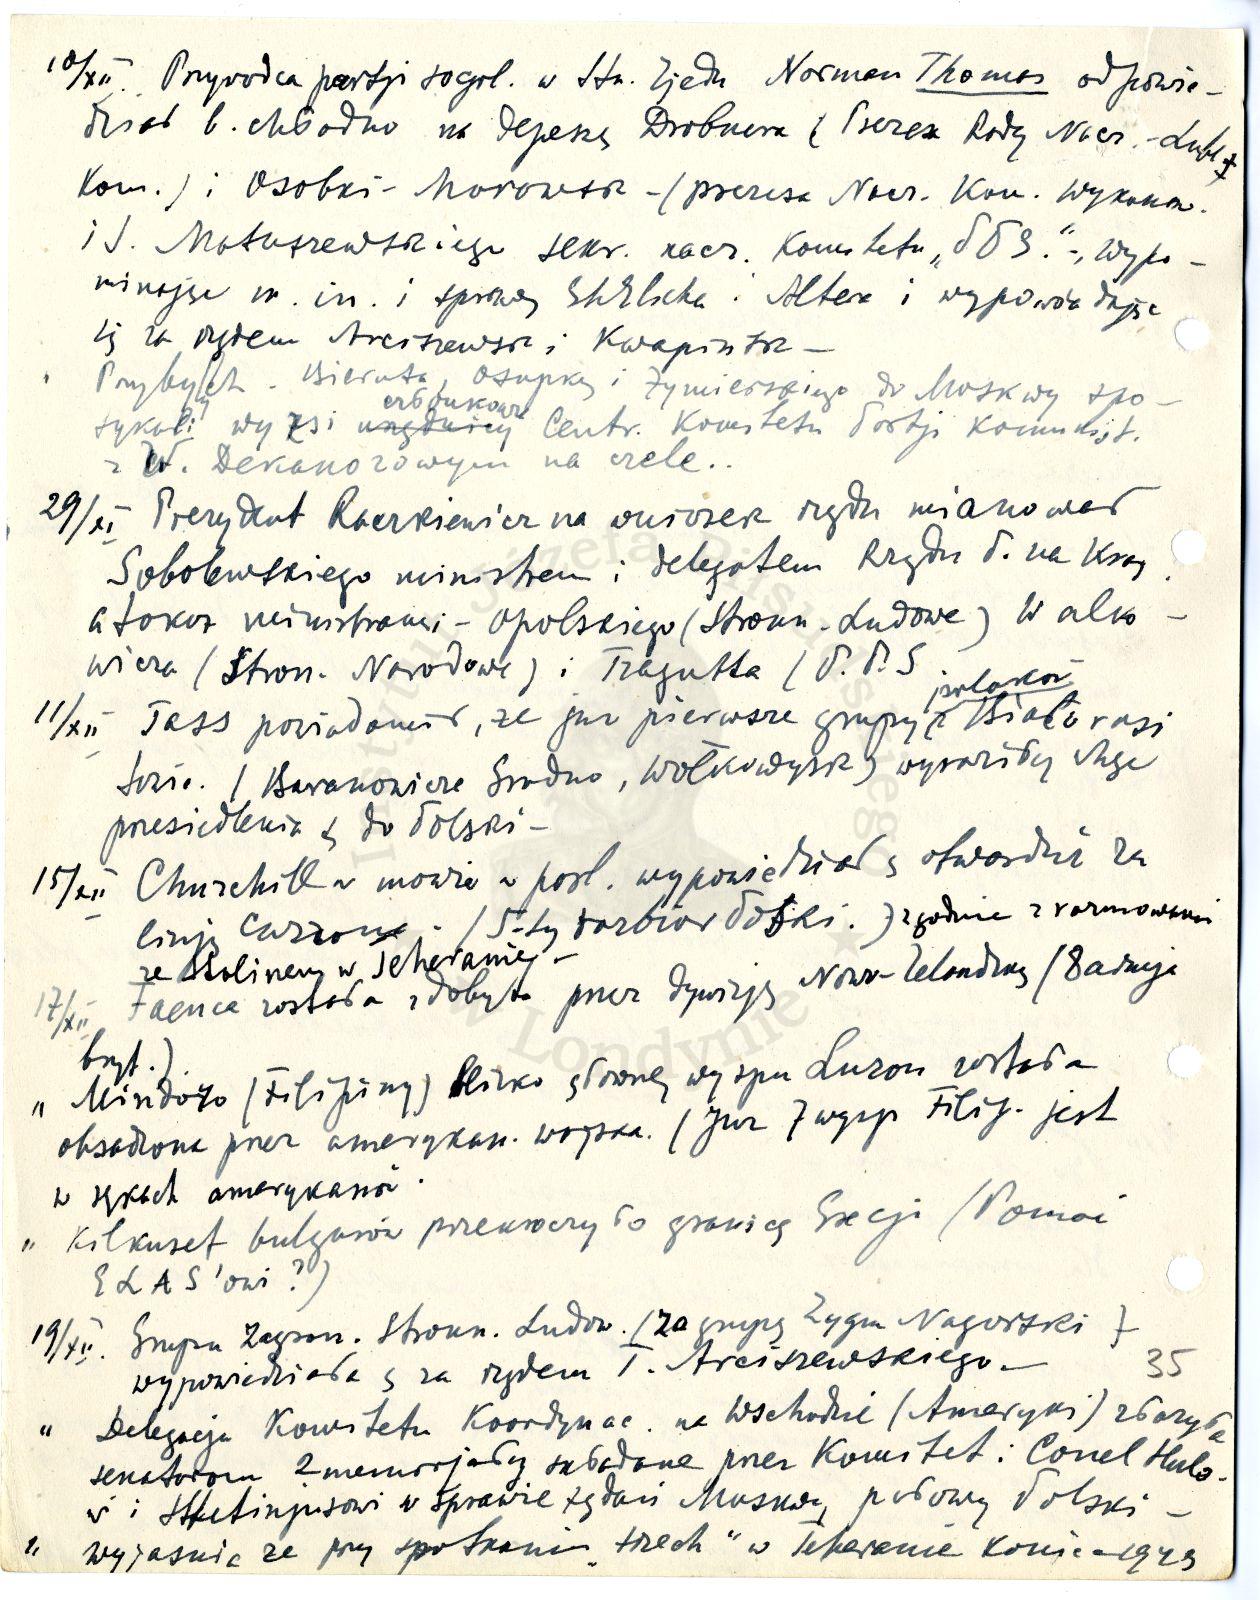 10/XII. Przywódca partji socjal. w Stn. Zjedn Norman Thomas odpowie-
dział b. chłodno na depeszę Drobnera (Prezesa Rady Nacz. - Lubl.
Kom.) i Osobki - Morawsk - (prezesa Nacz. Kom. Wykonaw.
i S. Matuszewskiego sekr. nacz. Komitetu „PPS." -, wypo-
minając m. in. i sprawę Ehrlicha i Altera i wypowiadając
się za rządem Arciszewsk i Kwapińsk -
" Przybyłych - Bieruta, Osupkę i Żymierskiego do Moskwy spo-
członkowie
tykali wyżsi urzędnicy Centr. Komitetu Partji Komunist.
z W. Dekanozowym na czele..
29/XI Prezydent Raczkiewicz na wniosek rządu mianował
Sobolewskiego ministrem i delegatem Rządu P. na Kraj
a tokoz ministrami - Opolskiego (Stronn. Ludowe) Walko-
wicza (Stron. Narodowe) i Tragutta (P.P.S
polaków
11/XII Tass powiadomił, że już pierwsze grupy z Białorusi
Sowie. (Baranowicze Grodno, Wołkowysk) wyraziły chęć
przesiedlenia ę do Polski -
15/XII Churchill w mowie w parl. wypowiedział ę otwarcie za
linją Curzona - (5-ty rozbiór Polski.) zgodnie z rozmowami
ze Stalinem w Teheranie -
17/XII Faenca została zdobyta przez dywizję Nowo-Zelandzką (8 armja
bryt.)
" Mindoro (Filipiny) blisko głównej wyspu Luzon została
obsadzona przez amerykan. wojska. (Już 7 wysp Filip. jest
w rękach amerykanów.
" Kilkuset bulgarów przekroczyło granicę Grecji (Pomoc
ELAS'owi?)
19/XII. Grupa Zagran. Stronn. Ludow. (za grupę Zygm Nagórski)
wypowiedziała ę za rządem T. Arciszewskiego -
35
" Delegacja Komitetu Koordynac. na Wschodzie (Ameryki) złożyła
senatorom 2 memorjały składane przez Komitet i Conel Hulo-
w i Stettinjusowi w sprawie żądań Moskwy połowy Polski -
" wyjaśnia ze przy spotkaniu „trzech" w Teheranie koniec 1943
Instytut Józefa Piłsudskiego
w Londynie